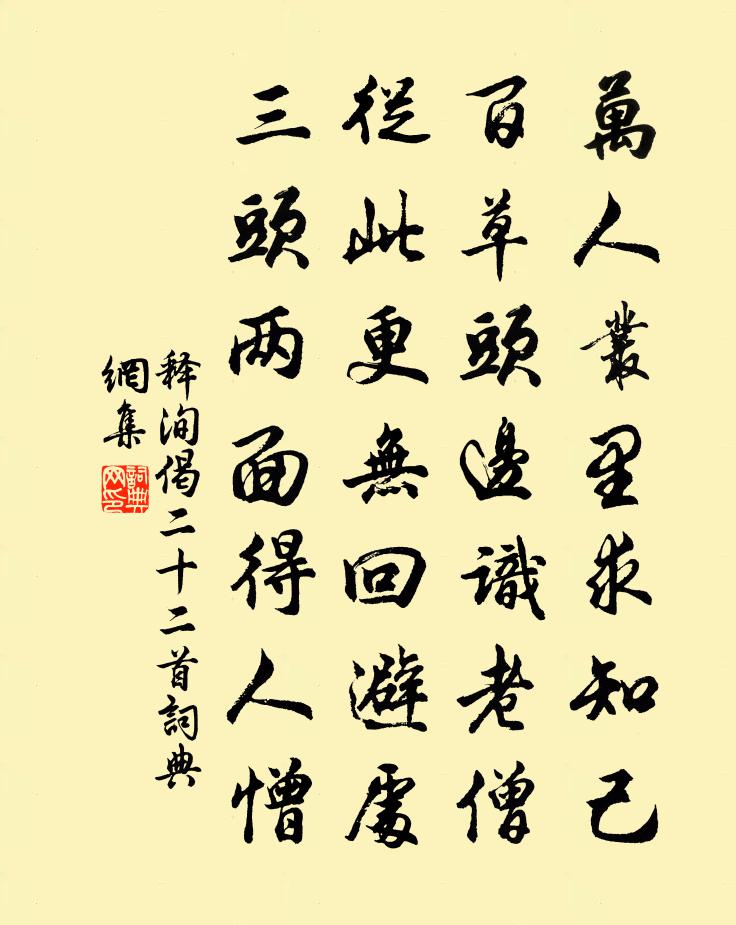 萬人叢里求知己
百草頭邊識老僧
從此更無回避處
三頭两面得人憎
释洵偈二十二首詞典
網集
詞典网印